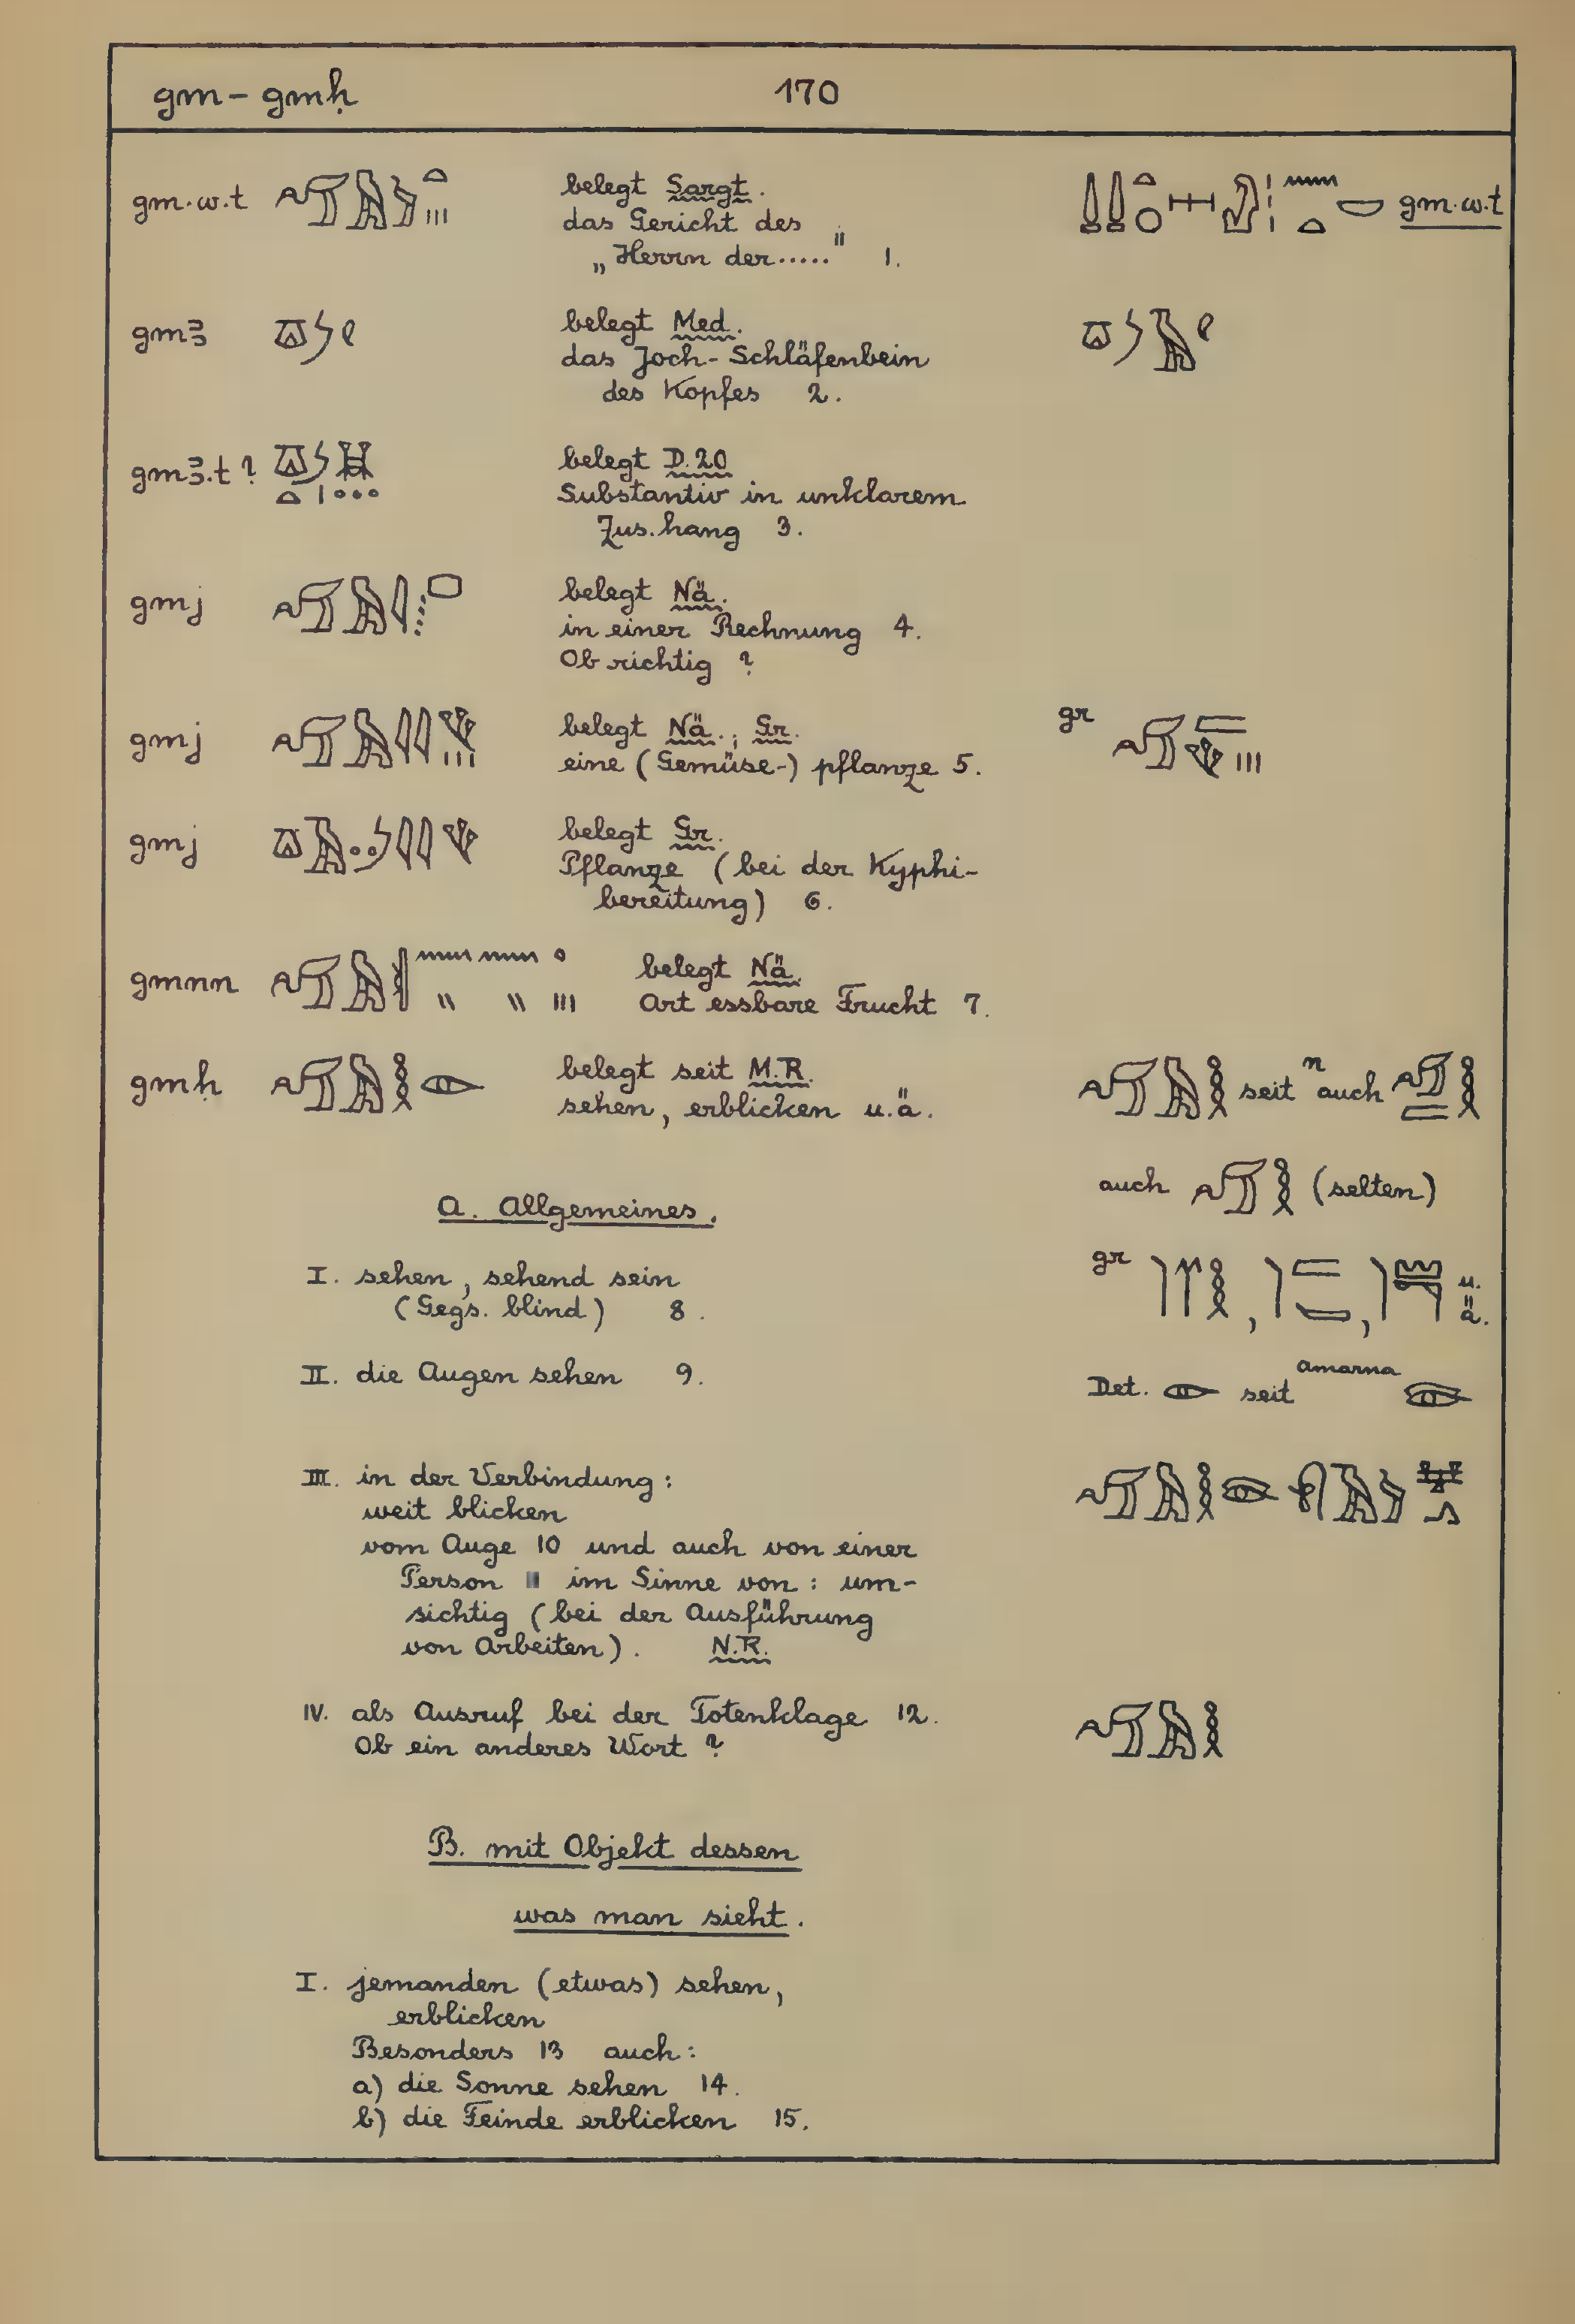 gm – gmḥ 170
gm.w.t belegt Sargt.
das Gericht des
„Herrn der....." 1. gm.w.t
gmꜣ belegt Med.
das Joch-Schläfenbein
des Kopfes 2.
gmꜣ.t ? belegt D.20
Substantiv in unklarem
Zus.hang 3.
gmj belegt Nä.
in einer Rechnung 4.
Ob richtig ?
gmj belegt Nä., Gr. gr
eine (Gemüse-) pflanze 5.
gmj belegt Gr.
Pflanze (bei der Kyphi-
bereitung) 6.
gmnn belegt Nä.
Art essbare Frucht 7.
gmḥ belegt seit M.R. seit n auch
sehen, erblicken u.ä.
auch (selten)
A. Allgemeines.
I. sehen, sehend sein
(Gegs. blind) 8.
gr , , u.ä.
II. die Augen sehen 9.
Det. seit Amarna
III. in der Verbindung:
weit blicken
vom Auge 10 und auch von einer
Person 11 im Sinne von: um-
sichtig (bei der Ausführung
von Arbeiten). N.R.
IV. als Ausruf bei der Totenklage 12.
Ob ein anderes Wort ?
B. mit Objekt dessen
was man sieht.
I. jemanden (etwas) sehen,
erblicken
Besonders 13 auch:
a) die Sonne sehen 14.
b) die Feinde erblicken 15.